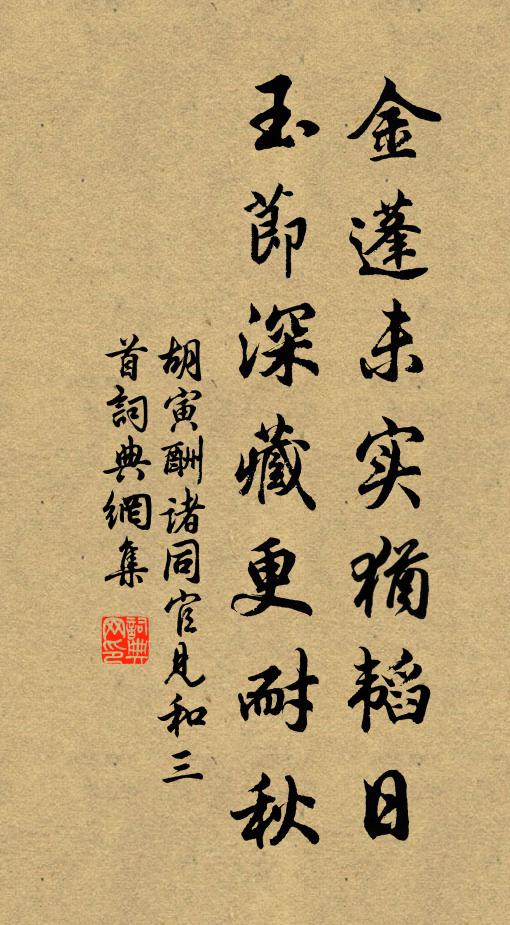 金蓬未实犹韬日
玉節深藏更耐秋
胡寅酬诸同官见和三
首詞典網集
詞典
网印